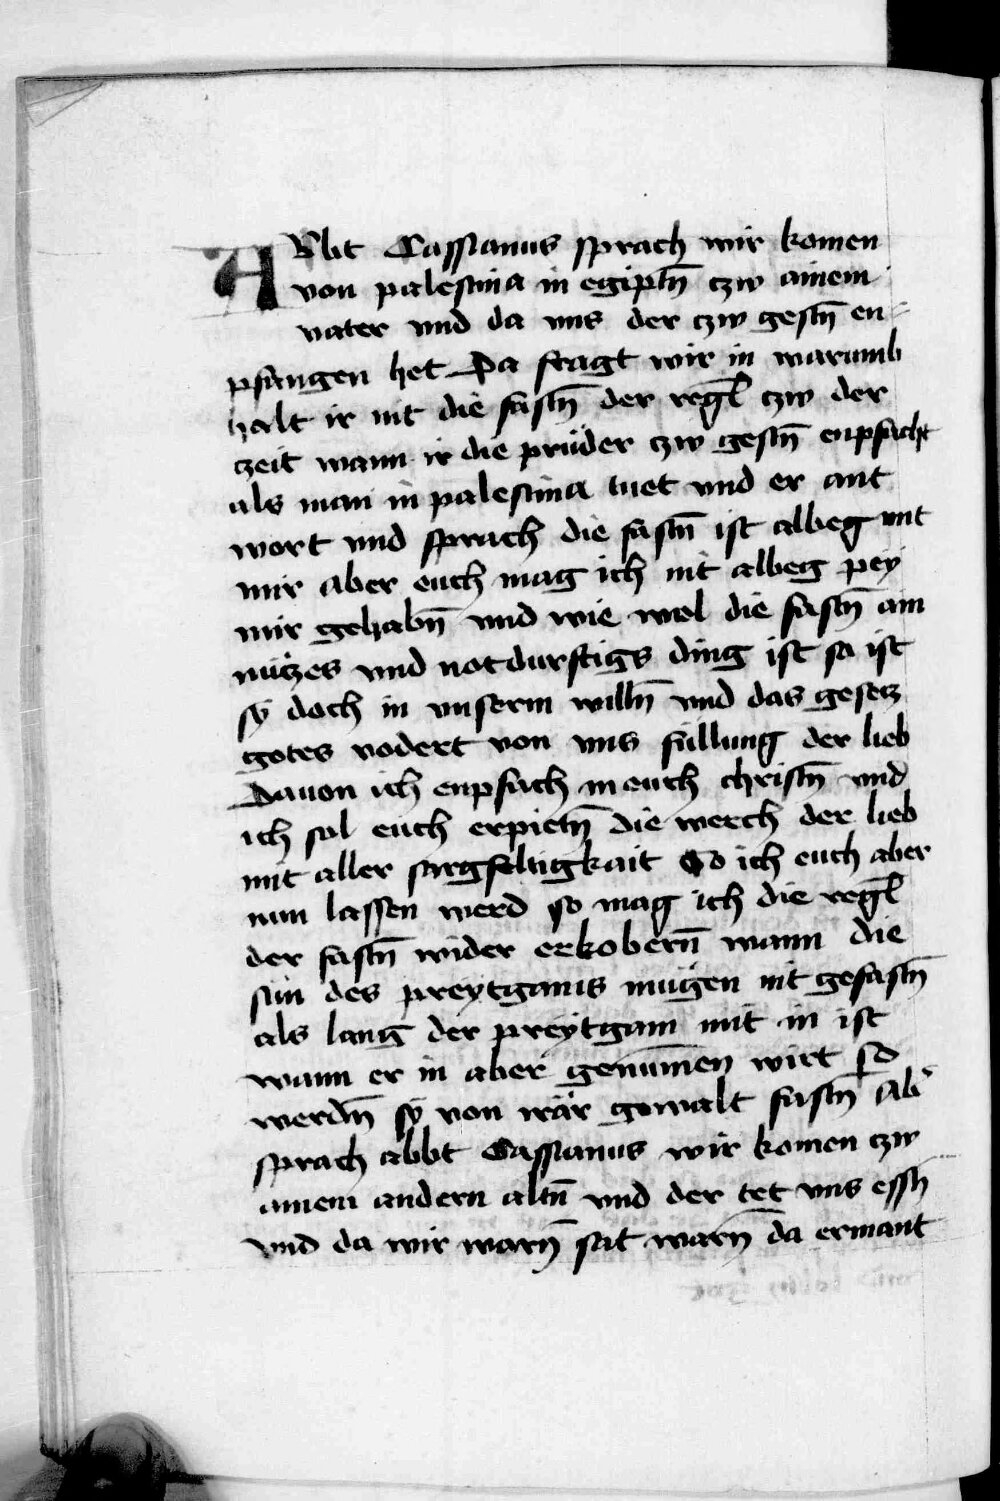 ABbt Cassianus sprach wir komen
von palestina in egiptn̄ czw ainem
vater vnd da vns der czw gestn̄ en-
pfangen het Da fragt wir in warumb
halt ir nit die fastn̄ der regl̄ czw der
czeit wann ir die prüder czw gestn̄ enpfacht
als man in palestina tuet vnd er ant
wort vnd sprach die fastn̄ ist albeg mit
mir aber euch mag ich nit albeg pey
mir gehabn̄ vnd wie wol die fastn̄ ain
nüczes vnd notdurftigs ding ist so ist
sÿ doch in vnserm willn̄ vnd das gesecz
gotes vodert von vns füllung der lieb
Dauon ich enpfach in euch christn̄ vnd
ich sol euch erpietn̄ die werch der lieb
mit aller sargfeltigkait So ich euch aber
nun lassen werd so mag ich die regl̄
der fastn̄ wider erkobern̄ wann die
sün des preytgams mügen nit gefastn̄
als lang der preÿtgam mit in ist
wann er in aber genūmen wirt so
werdn̄ sÿ von irär gewalt fastn̄ Ab᷑
sprach abbt Cassianus wir komen czw
ainem andern altn̄ vnd der tet vns essn̄
vnd da wir warn̄ sat warn̄ da ermant